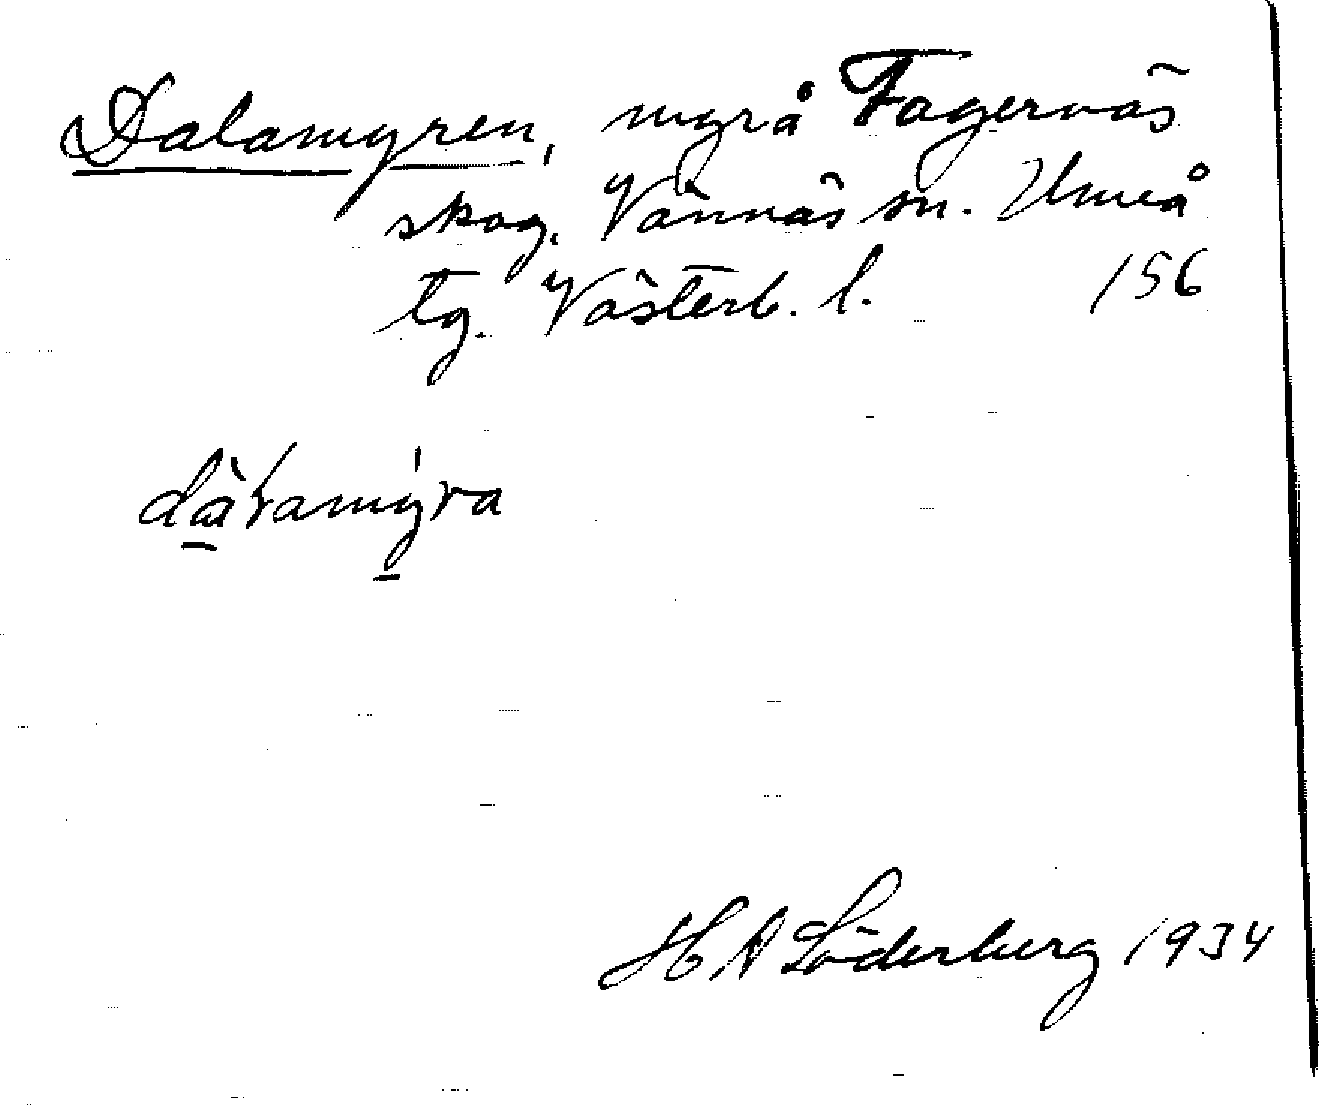 Dalamyren, myr å Fagernäs
skog. Vännäs sn. Umeå
tg. Västerb. l. 156
H A Söderberg 1934